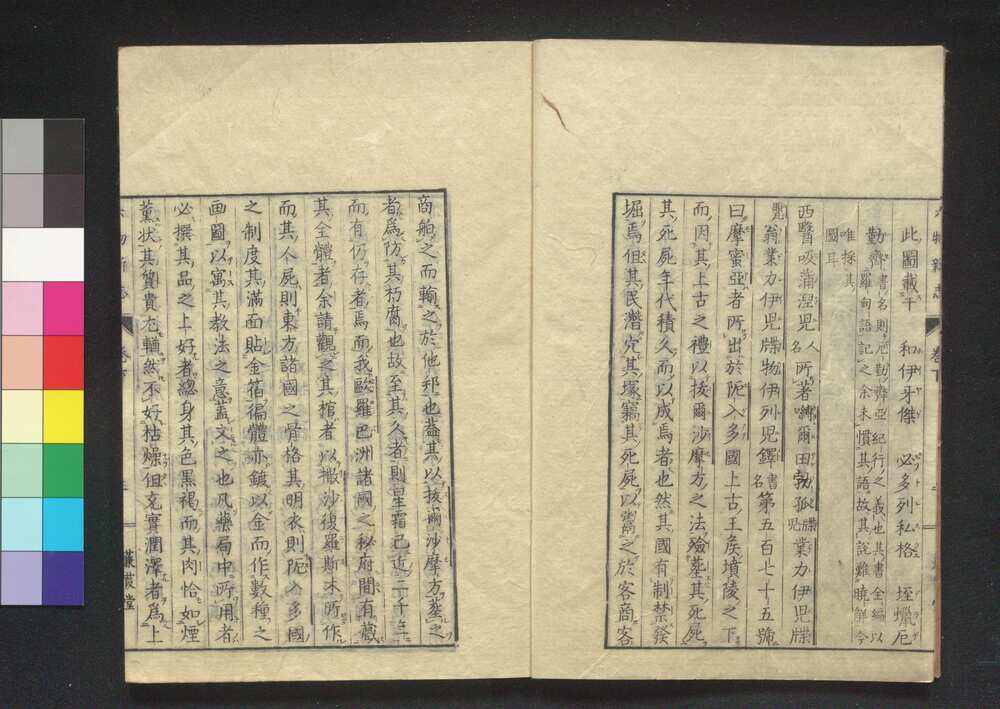 此圖載于 和伊牙傑 必多列私格 垤蠟厄
勤齊 書名則厄勤齊亞紀行之義也其書全編以
羅甸語記之余未慣其語故其說難曉解今
唯採其
圖耳
西醫吸蒲涅児 人名 所著 爾田勃孤 牒児 業力伊児牒
翁業力伊児牒物伊列児鐸 書名 第五百七十五號
曰摩蜜亞者所出於阨入多國上古王矦墳陵之下
而因其上古之禮以拔爾沙摩方之法殮塟其死屍
其死屍年代積久而以成焉者也然其國有制禁發
堀焉但其民潛穴其塚竊其死屍以鬻之於客商客
商舶之而輸之於他邦也葢其以拔爾沙摩方塟之
者為防其朽腐也故至其久者則星霜已近二千年
而有仍存者焉而我歐羅巴洲諸國之秘府間有藏
其全體者余請觀之其棺者以撒沙復羅斯木所作
而其人屍則東方諸國之骨格其明衣則阨入多國
之制度其滿面貼金箔徧體亦鍍以金而作數種之
画圖以寓其教法之意葢文之也凡藥局中所用者
必撰其品之上好者總身其色黒褐而其肉恰如煙
薫状其質貴尢輶然不好枯燥但充實潤澤者為上
蒹葭堂